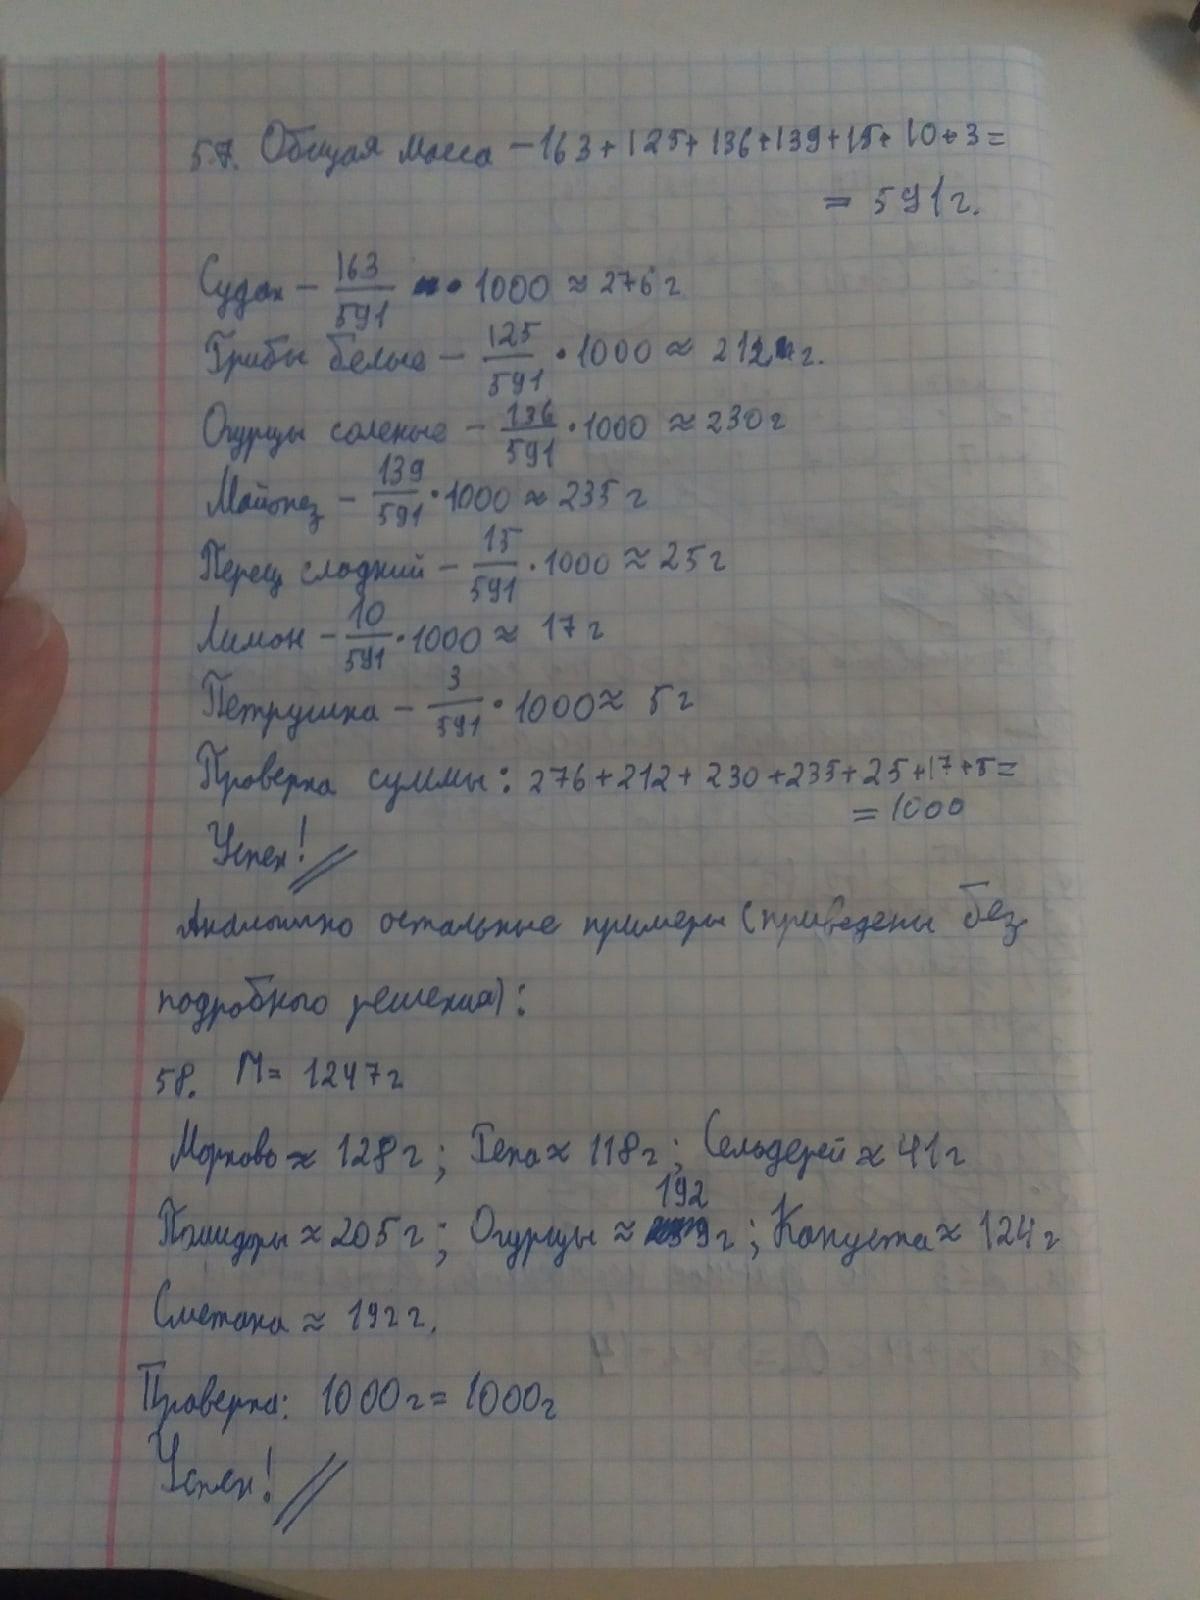 57. Общая масса – 163 + 125 + 136 + 139 + 15 + 10 + 3 =
= 591 г.
Судак – 163/591 · 1000 ≈ 276 г
Грибы белые – 125/591 · 1000 ≈ 212 г.
Огурцы соленые – 136/591 · 1000 ≈ 230 г
Майонез – 139/591 · 1000 ≈ 235 г
Перец сладкий – 15/591 · 1000 ≈ 25 г
Лимон – 10/591 · 1000 ≈ 17 г
Петрушка – 3/591 · 1000 ≈ 5 г
Проверка суммы: 276 + 212 + 230 + 235 + 25 + 17 + 5 =
= 1000
Успех!
Аналогично остальные примеры (приведены без
подробного решения):
58. M = 1247 г
Морковь ≈ 128 г; Репа ≈ 118 г; Сельдерей ≈ 41 г
Помидоры ≈ 205 г; Огурцы ≈ 192 г; Капуста ≈ 124 г
Сметана ≈ 192 г.
Проверка: 1000 г = 1000 г
Успех!